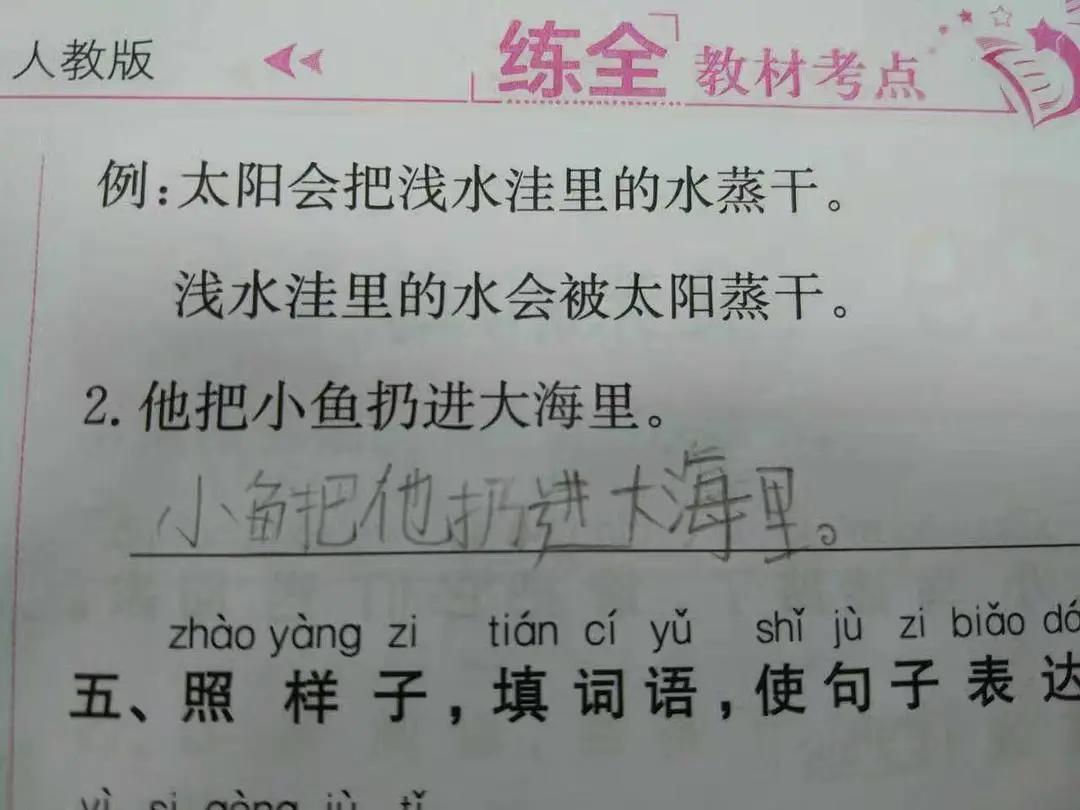 人教版 练全 教材考点
例:太阳会把浅水洼里的水蒸干。
浅水洼里的水会被太阳蒸干。
2. 他把小鱼扔进大海里。
小鱼把他扔进大海里。
zhào yàng zi tián cí yǔ shǐ jù zi biǎo
五、照样子,填词语,使句子表达